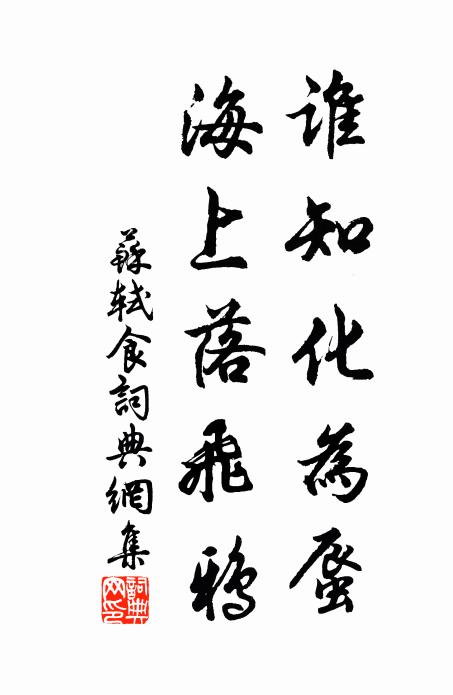 誰知化為蜃
海上落飛鴉
蘇軾食詞典網集
詞典
网印